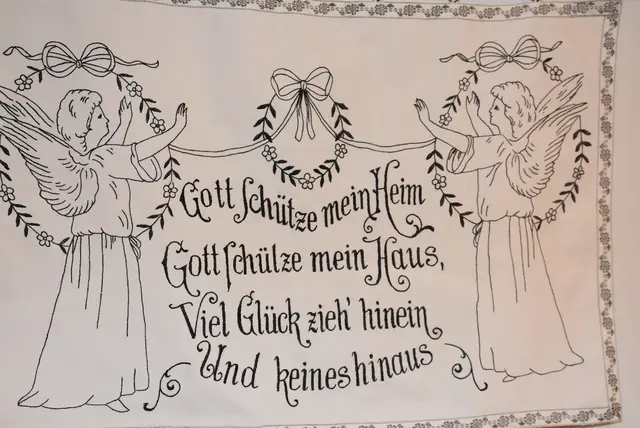 Gott schütze mein Heim
Gott schülze mein Haus,
Viel Glück zieh' hinein
Und keines hinaus